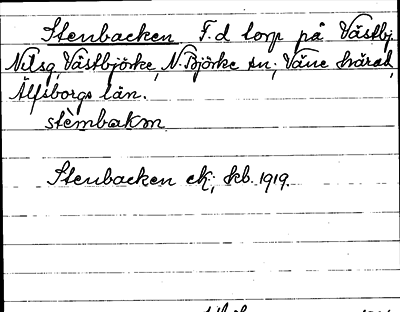 Stenbacken F.d torp på Västbj
Nilsg, Västbjörke, N. Björke sn; Väne härad,
Älfsborgs län.
stèmbakɱ
Stenbacken ek; skb. 1919.